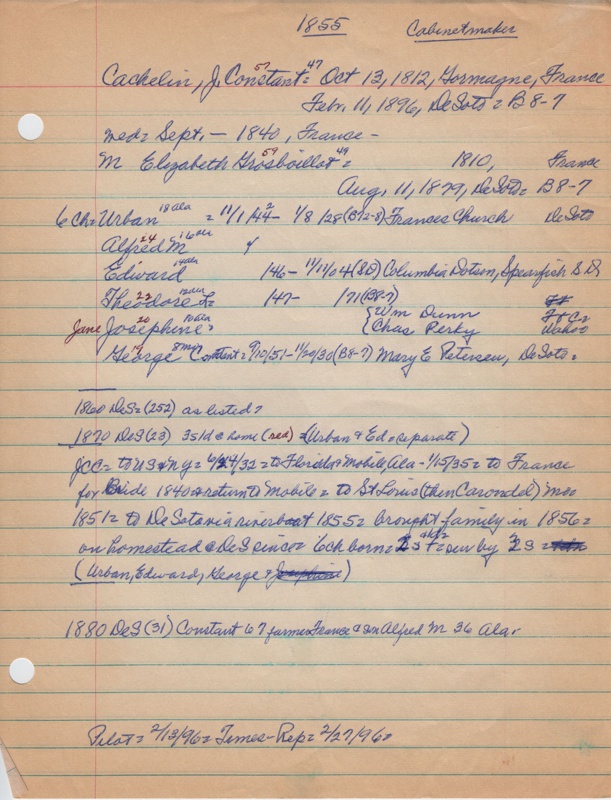 1855 Cabinetmaker
Cachelin, J. Constant 57 47 = Oct 13, 1812, Gormagne, France
Febr. 11, 1896, DeSoto = B8-7
med = Sept. — 1840, France -
M Elizabeth Grosboillot 59 49 = 1810, France
Aug. 11, 1879, DeSoto = B8-7
6 Ch = Urban 18 Ala = 11/1/42 - 1/8/28 (B12-8) Frances Church DeSoto
Alfred M 24 16 Ala
Edward 14 Ala 146 - 11/11/04 (SD) Columbia Dotson, Spearfish S.D.
Theodore L 22 12 Ala 147 - 171 (B8-7)
Jane Josephine 20 10 Ala { Wm Dunn Ft C =
{ Chas Perky Wahoo
George 19 8 mo Constant = 9/10/51 - 11/20/30 (B8-7) Mary E Petersen, DeSoto =
1860 DeS = (252) as listed?
1870 DeS (23) 3s1d @ home (red) = (Urban & Ed = separate)
JCC = to US @ NY = 6/24/32 = to Florida & Mobile Ala - 1/15/35 = to France
for Bride 1840 & return to Mobile = to St Louis (then Carondel) Mo =
1851 = to DeSoto via riverboat 1855 = brought family in 1856 =
on homestead @ DeS since = 6ch born = sur by 3 S =
(Urban, Edward, George & Josephine)
1880 DeS (31) Constant 67 farmer France & son Alfred M 36 Ala.
Pilot = 2/13/96 = Times-Rep = 2/27/96 =